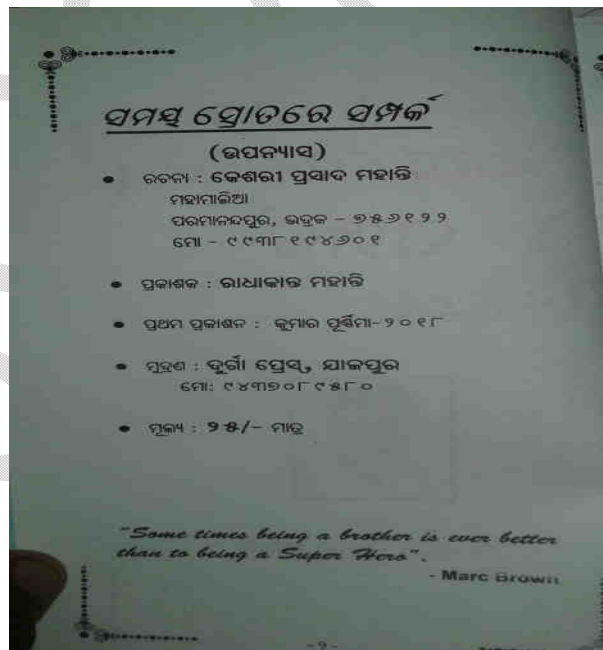 ସମୟ ସ୍ରୋତରେ ସମ୍ପର୍କ
(ଉପନ୍ୟାସ)
• ରଚନା : କେଶରୀ ପ୍ରସାଦ ମହାନ୍ତି
ମହାମାଲିଆ
ପରମାନନ୍ଦପୁର, ଭଦ୍ରକ - ୭୫୬୧୨୨
ମୋ - ୯୯୩୮୧୯୪୬୦୧
• ପ୍ରକାଶକ : ରାଧାକାନ୍ତ ମହାନ୍ତି
• ପ୍ରଥମ ପ୍ରକାଶନ : କୁମାର ପୂର୍ଣ୍ଣିମା-୨୦୧୮
• ମୁଦ୍ରଣ : ଦୁର୍ଗା ପ୍ରେସ୍, ଯାଜପୁର
ମୋ: ୯୪୩୭୦୮୯୫୮୦
• ମୂଲ୍ୟ : ୨୫/- ମାତ୍ର
"Some times being a brother is ever better
than to being a Super Hero".
- Marc Brown
-୨-